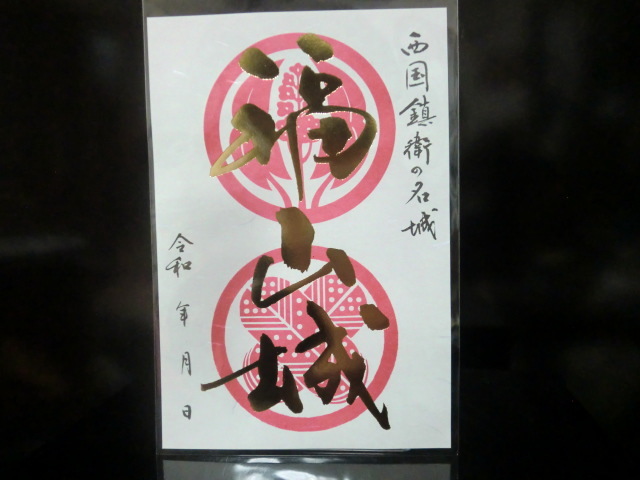 西国鎮衛の名城
福山城
令和 年 月 日